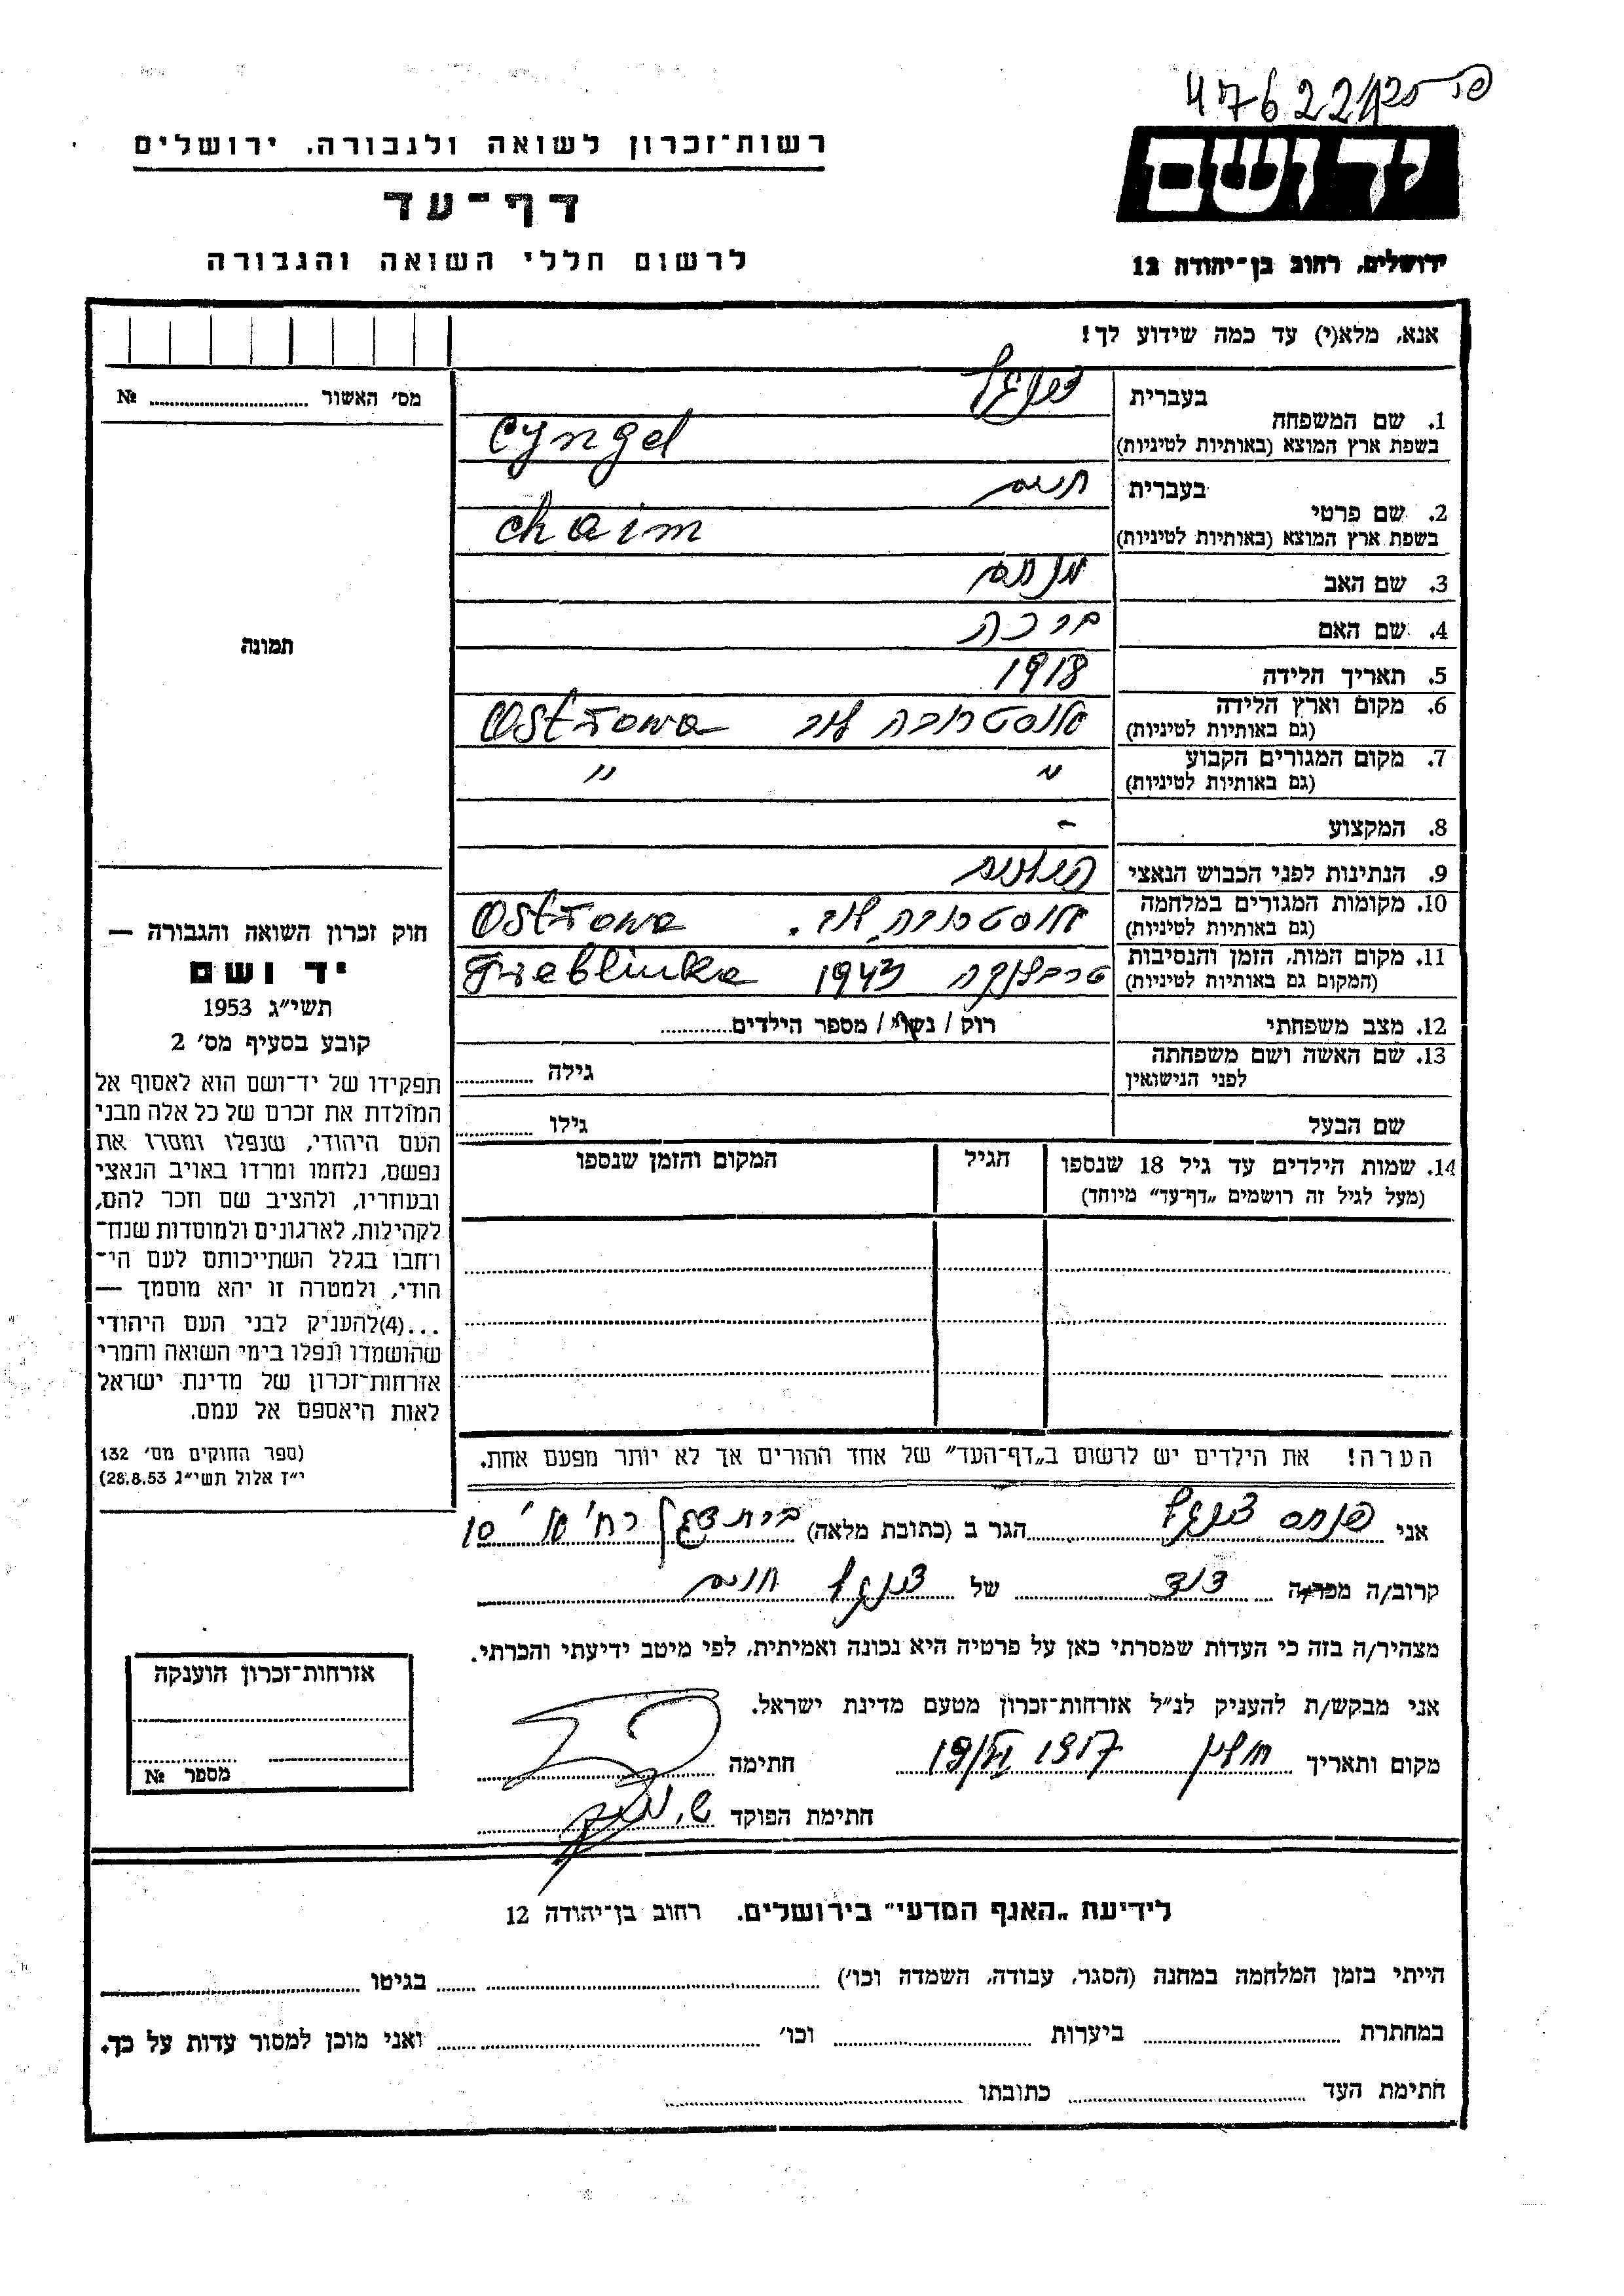 476221
רשות־זכרון לשואה ולגבורה. ירושלים
דף־עד
לרשום חללי השואה והגבורה
יד ושם
ירושלים, רחוב בן־יהודה 12
אנא, מלא(י) עד כמה שידוע לך!
מס׳ האשור № 
תמונה
1. שם המשפחה בעברית צינגל
בשפת ארץ המוצא (באותיות לטיניות) Cyngel
2. שם פרטי בעברית חיים
בשפת ארץ המוצא (באותיות לטיניות) chaim
3. שם האב מנחם
4. שם האם ברכה
5. תאריך הלידה 1918
6. מקום וארץ הלידה (גם באותיות לטיניות) אוסטרובה Ostrowa
7. מקום המגורים הקבוע (גם באותיות לטיניות) " "
8. המקצוע -
9. הנתינות לפני הכבוש הנאצי
10. מקומות המגורים במלחמה (גם באותיות לטיניות) אוסטרובה Ostrowa
11. מקום המות, הזמן והנסיבות (המקום גם באותיות לטיניות) טרבלינקה 1943 Treblinka
12. מצב משפחתי רוק / נשוי / מספר הילדים
13. שם האשה ושם משפחתה לפני הנישואין גילה
שם הבעל גילו
14. שמות הילדים עד גיל 18 שנספו הגיל המקום והזמן שנספו
(מעל לגיל זה רושמים „דף־עד״ מיוחד)
חוק זכרון השואה והגבורה —
יד ושם
תשי״ג 1953
קובע בסעיף מס׳ 2
תפקידו של יד־ושם הוא לאסוף אל
המולדת את זכרם של כל אלה מבני
העם היהודי, שנפלו ומסרו את
נפשם, נלחמו ומרדו באויב הנאצי
ובעוזריו, ולהציב שם וזכר להם,
לקהילות, לארגונים ולמוסדות שנח־
רחבו בגלל השתייכותם לעם הי־
הודי, ולמטרה זו יהא מוסמך —
...(4)להעניק לבני העם היהודי
שהושמדו ונפלו בימי השואה והמרי
אזרחות־זכרון של מדינת ישראל
לאות היאספם אל עמם.
(ספר החוקים מס׳ 132
י״ז אלול תשי״ג 28.8.53)
הערה! את הילדים יש לרשום ב„דף־העד״ של אחד ההורים אך לא יותר מפעם אחת.
אני פנחס צינגל הגר ב (כתובת מלאה) רח׳ 10
קרוב/ה מכר/ה דוד של צינגל חיים
מצהיר/ה בזה כי העדות שמסרתי כאן על פרטיה היא נכונה ואמיתית, לפי מיטב ידיעתי והכרתי.
אני מבקש/ת להעניק לנ״ל אזרחות־זכרון מטעם מדינת ישראל.
מקום ותאריך חתימה
חתימת הפוקד
אזרחות־זכרון הוענקה
מספר №
לידיעת „האגף המדעי״ בירושלים. רחוב בן־יהודה 12
הייתי בזמן המלחמה במחנה (הסגר, עבודה, השמדה וכו׳) בגיטו
במחתרת ביערות וכו׳ ואני מוכן למסור עדות על כך.
חתימת העד כתובתו